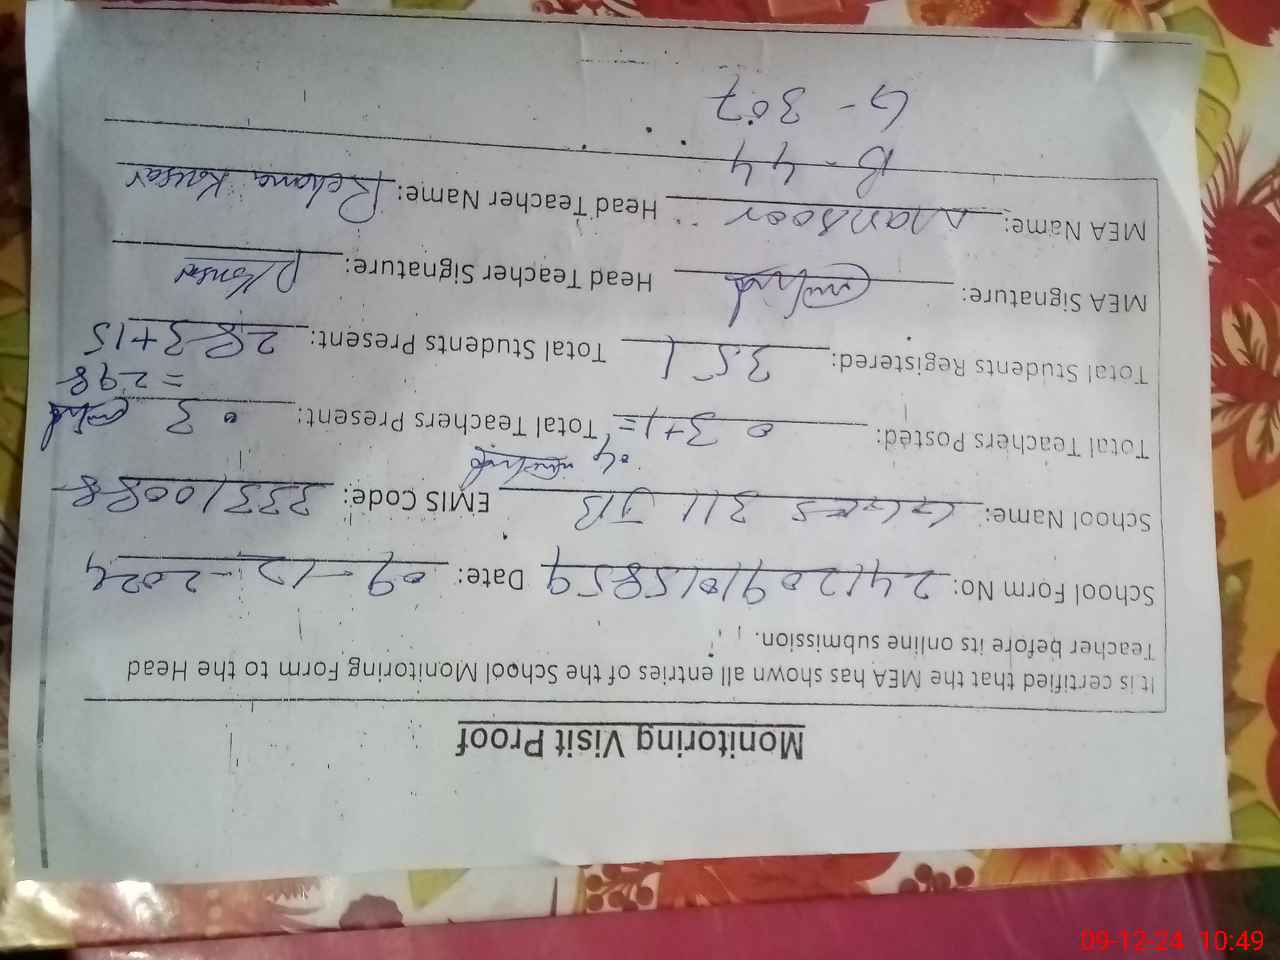 Monitoring Visit Proof
It is certified that the MEA has shown all entries of the School Monitoring Form to the Head
Teacher before its online submission.
School Form No: 2412091015859 Date: 09-12-2024
School Name: GGES 311 JB EMIS Code: 33310088
Total Teachers Posted: 03+1= 04 Total Teachers Present: 03
Total Students Registered: 351 Total Students Present: 283+15
=298
MEA Signature: Head Teacher Signature:
MEA Name: Mansoor Head Teacher Name: Rehana Kausar
B-44
G-307
09-12-24 10:49